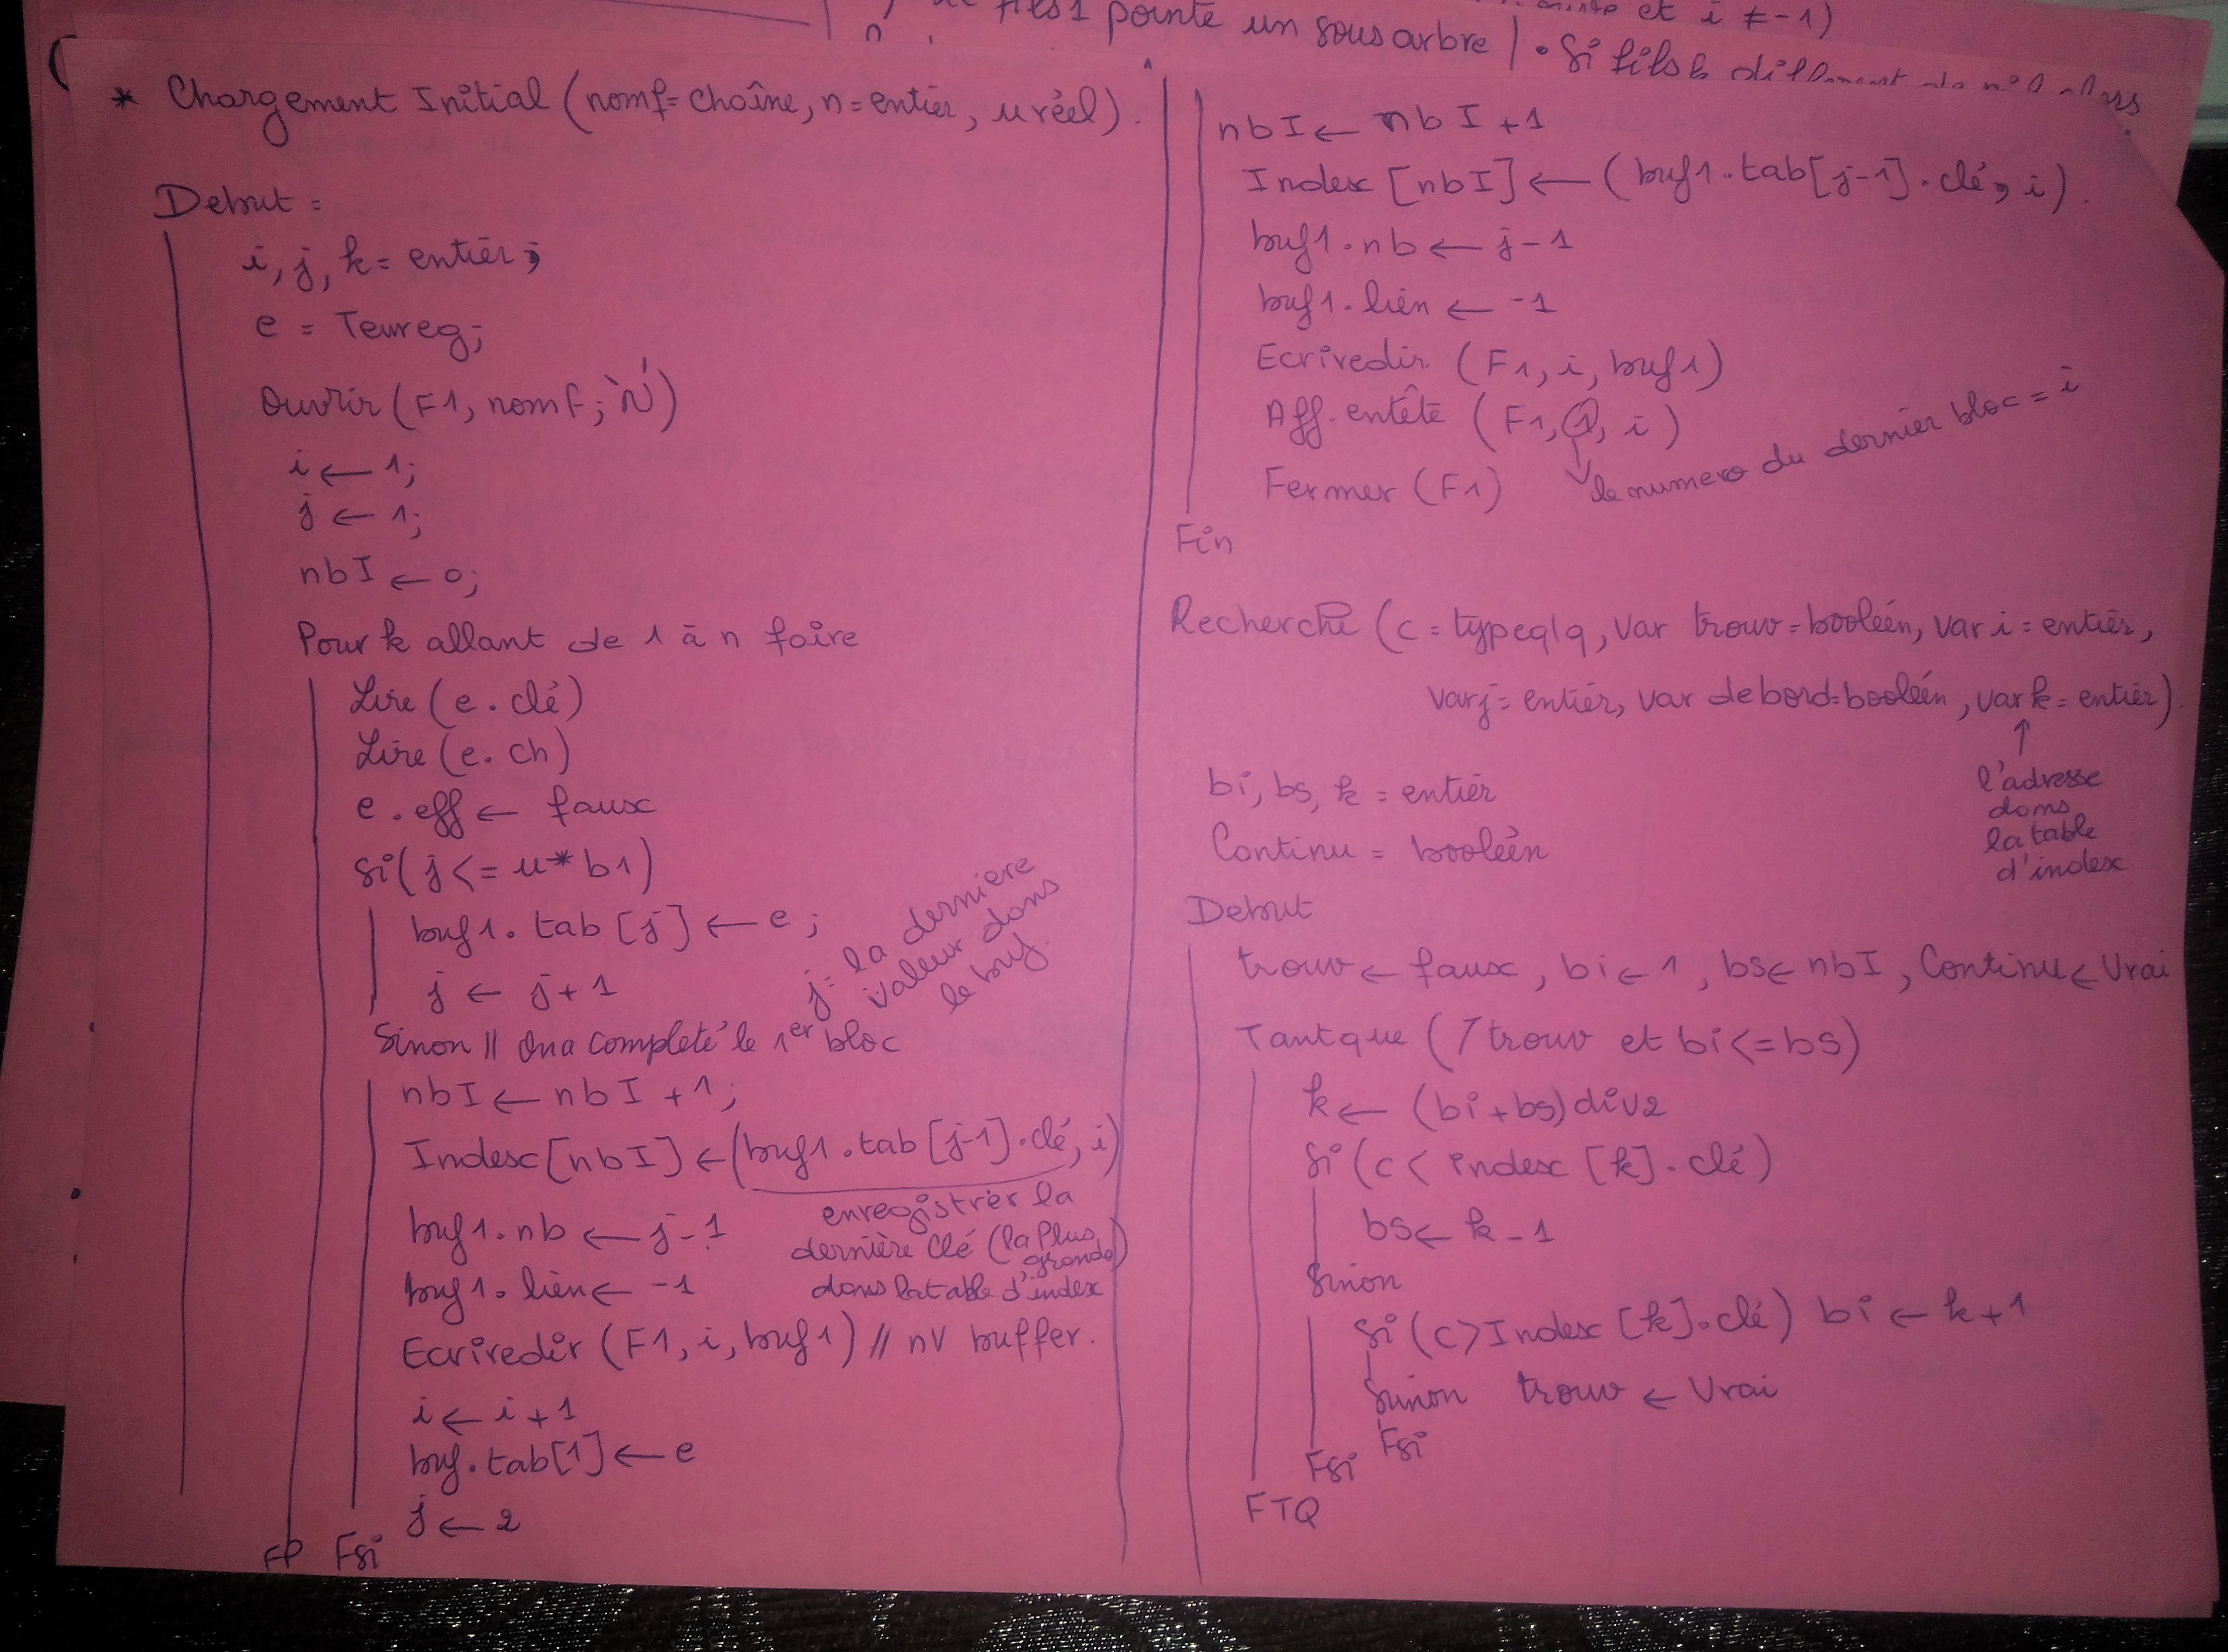 fils1 pointe un sous arbre
et i ≠ -1)
• Si fils
* Chargement Initial (nomf= chaîne, n= entier, u réel).
Debut :
i, j, k = entier ;
e = Teureg;
Ouvrir (F1, nomf ; 'N')
i ← 1;
j ← 1;
nbI ← 0;
Pour k allant de 1 à n faire
Lire (e. clé)
Lire (e. ch)
e. eff ← faux
Si ( j <= u * b1)
buf1. tab [j] ← e ;
j ← j + 1
j= la derniere
valeur dans
le buf.
Sinon || On a completé le 1er bloc
nbI ← nbI + 1;
Index [nbI] ← (buf1. tab [j-1]. clé, i)
enregistrer la
dernière clé (la plus
grande)
dans la table d'index
buf1. nb ← j - 1
buf1. lien ← -1
Ecriredir (F1, i, buf1) // nv buffer.
i ← i + 1
buf. tab [1] ← e
j ← 2
Fsi
FP
nbI ← nbI + 1
Index [nbI] ← (buf1. tab [j-1]. clé, i).
buf1. nb ← j - 1
buf1. lien ← -1
Ecriredir (F1, i, buf1)
Aff. entête (F1, 1, i)
le numero du dernier bloc = i
Fermer (F1)
Fin
Recherche (c = typeqlq, var trouv = booléen, var i = entier,
var j = entier, var debord = booléen, var k = entier).
l'adresse
dans
la table
d'index
bi, bs, k = entier
Continu = booléen
Debut
trouv ← faux, bi ← 1, bs ← nbI, Continu ← Vrai
Tantque (7 trouv et bi <= bs)
k ← (bi + bs) div 2
Si (c < index [k]. clé)
bs ← k - 1
Sinon
Si (c > Index [k]. clé) bi ← k + 1
Sinon trouv ← Vrai
Fsi
Fsi
FTQ